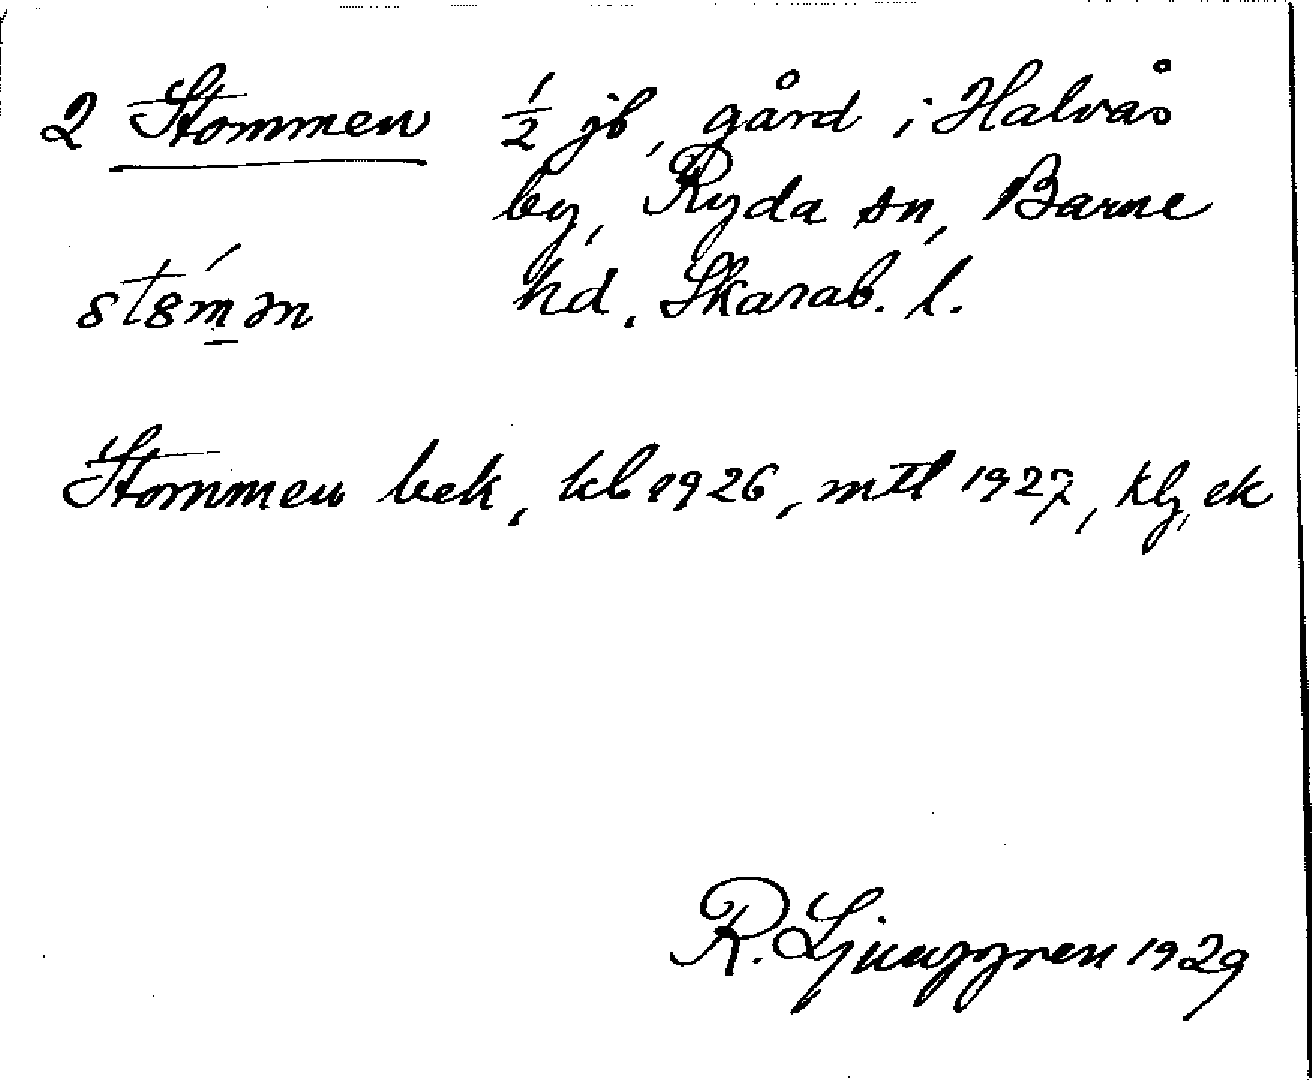 2 Stommen ½ jb, gård i Halvås
by, Ryda sn, Barne
hd. Skarab. l.
st8ḿ̱ən
Stommen bek, kb 1926, mtl 1927, klg, ek
R. Ljunggren 1929